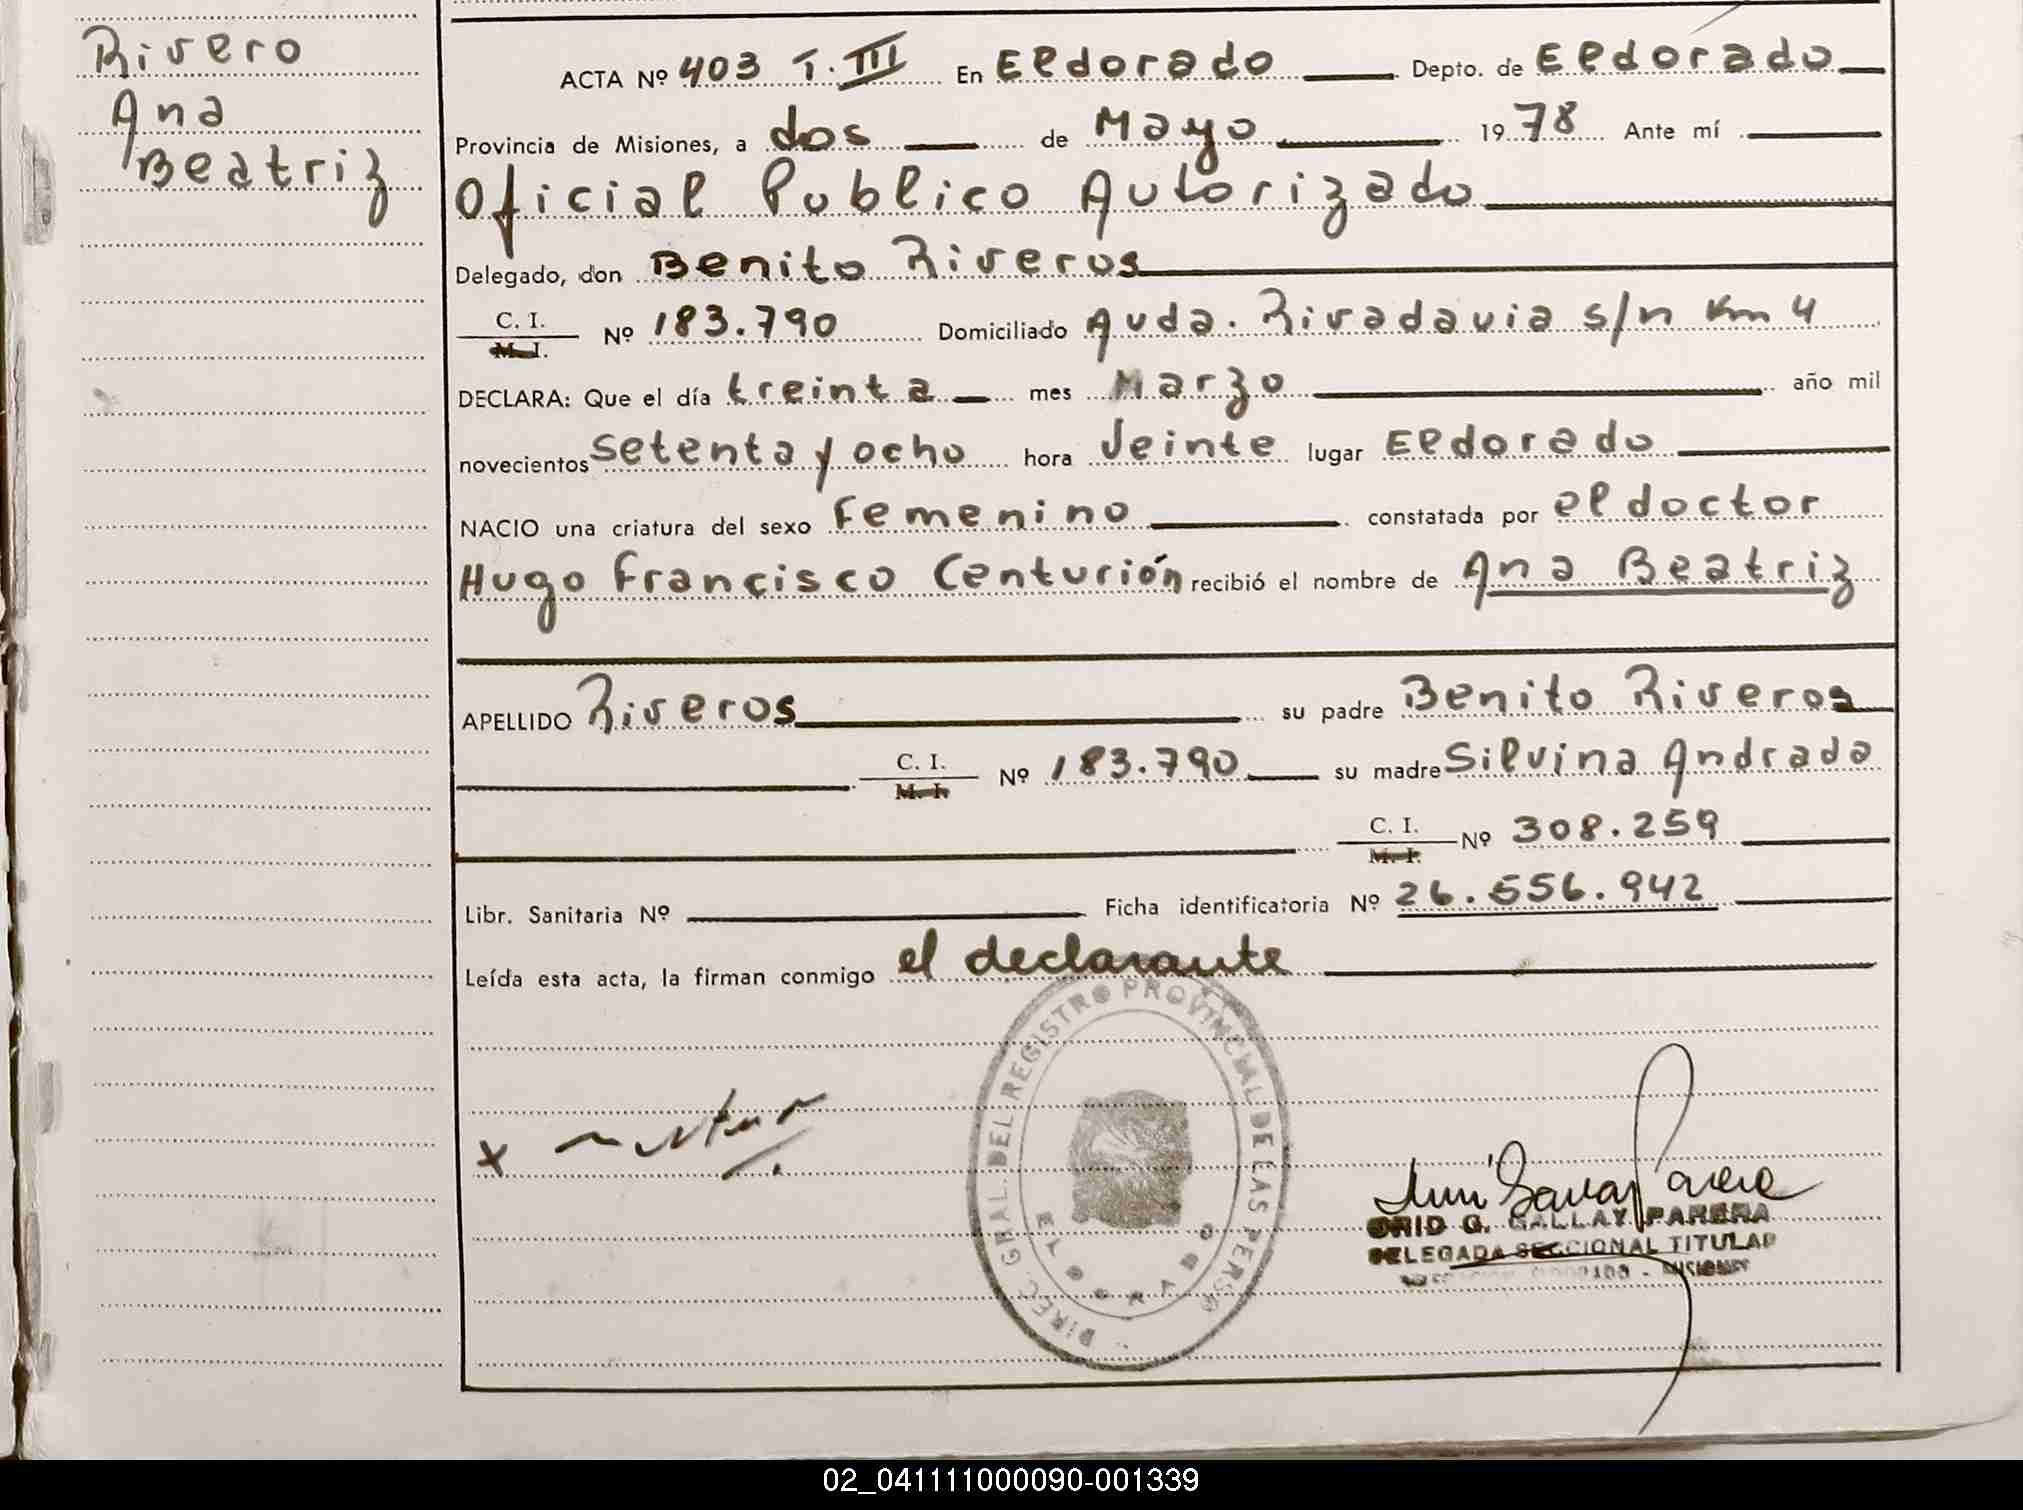 Rivero
Ana
Beatriz
ACTA Nº 403 T. III En Eldorado Depto. de Eldorado
Provincia de Misiones, a dos de Mayo 1978 Ante mí
Oficial Publico Autorizado
Delegado, don Benito Riveros
C. I.
M. I. Nº 183.790 Domiciliado Avda. Rivadavia s/n Km 4
DECLARA: Que el día treinta mes Marzo año mil
novecientos setenta y ocho hora Veinte lugar Eldorado
NACIO una criatura del sexo Femenino constatada por el doctor
Hugo Francisco Centurión recibió el nombre de Ana Beatriz
APELLIDO Riveros su padre Benito Riveros
C. I.
M. I. Nº 183.790 su madre Silvina Andrada
C. I.
M. I. Nº 308.259
Libr. Sanitaria Nº Ficha identificatoria Nº 26.556.942
Leída esta acta, la firman conmigo el declarante
DIREC. GRAL. DEL REGISTRO PROVINCIAL DE LAS PERS.
ELDORADO
x
G. GALLAY PARERA
DELEGADA SECCIONAL TITULAR
MISIONES
02_041111000090-001339